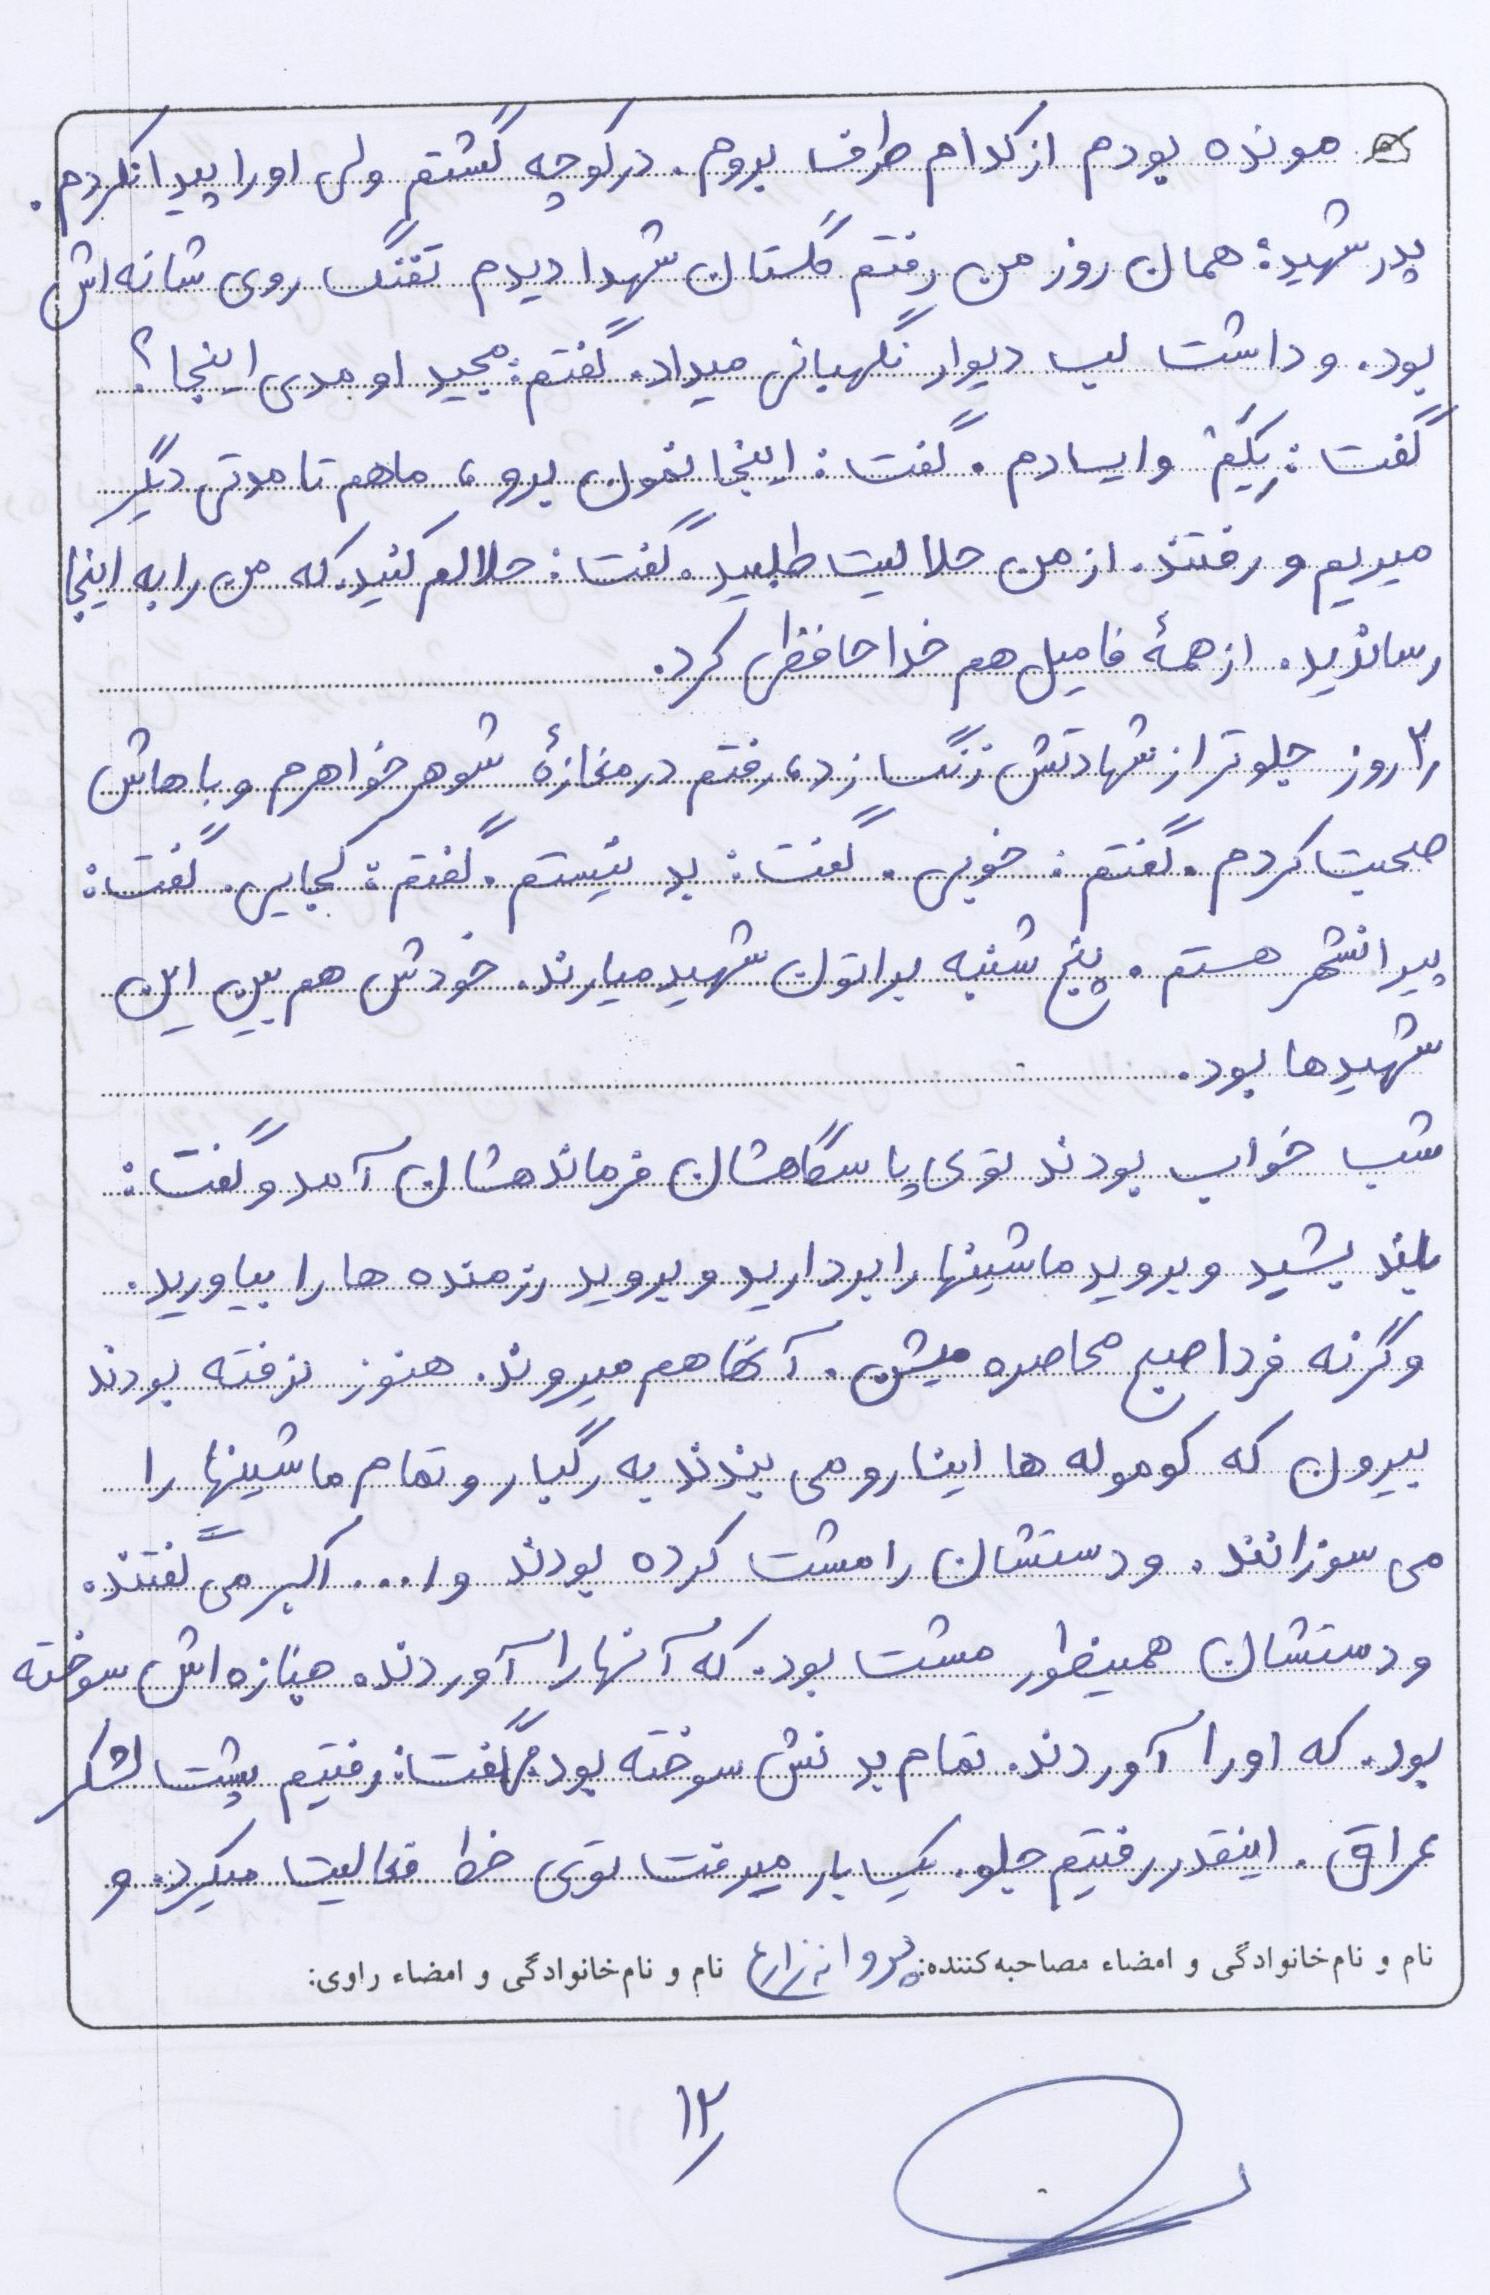 مونده بودم از کدام طرف بروم. در کوچه گشتم ولی او را پیدا نکردم.
پدر شهید: همان روز من رفتم گلستان شهدا دیدم تفنگ روی شانه اش
بود. و داشت لب دیوار نگهبانی میداد. گفتم: مجید اومدی اینجا؟
گفت: وایسادم. گفت: اینجا نمون برو، ما هم تا مدتی دیگر
میریم و رفتند. از من حلالیت طلبید. گفت: حلالم کنید. که من را به اینجا
رساندید. از همهٔ فامیل هم خداحافظی کرد.
۲ روز جلوتر از شهادتش زنگ زد، رفتم در مغازهٔ شوهر خواهرم و باهاش
صحبت کردم. گفتم: خوبی. گفت: بد نیستم. گفتم: کجایی. گفت:
پیرانشهر هستم. پنج شنبه براتون شهید میارند. خودش هم بین این
شهیدها بود.
شب خواب بودند توی پاسگاهشان فرماندهشان آمد و گفت:
بلند بشید و بروید ماشینها را بردارید و بروید رزمنده ها را بیاورید.
وگرنه فردا صبح محاصره میشن. آنها هم میروند. هنوز نرفته بودند
بیرون که کوموله ها اینا رو می بندند به رگبار و تمام ماشینها را
می سوزانند. و دستشان را مشت کرده بودند و ا... اکبر می گفتند.
و دستشان همینطور مشت بود. که آنها را آوردند. جنازه اش سوخته
بود. که او را آوردند. تمام بدنش سوخته بود. گفت: رفتیم پشت لشکر
عراق. اینقدر رفتیم جلو. یک بار میرفت توی خط فعالیت میکرد. و
نام و نام خانوادگی و امضاء مصاحبه کننده: پروانه زارع نام و نام خانوادگی و امضاء راوی:
۱۲